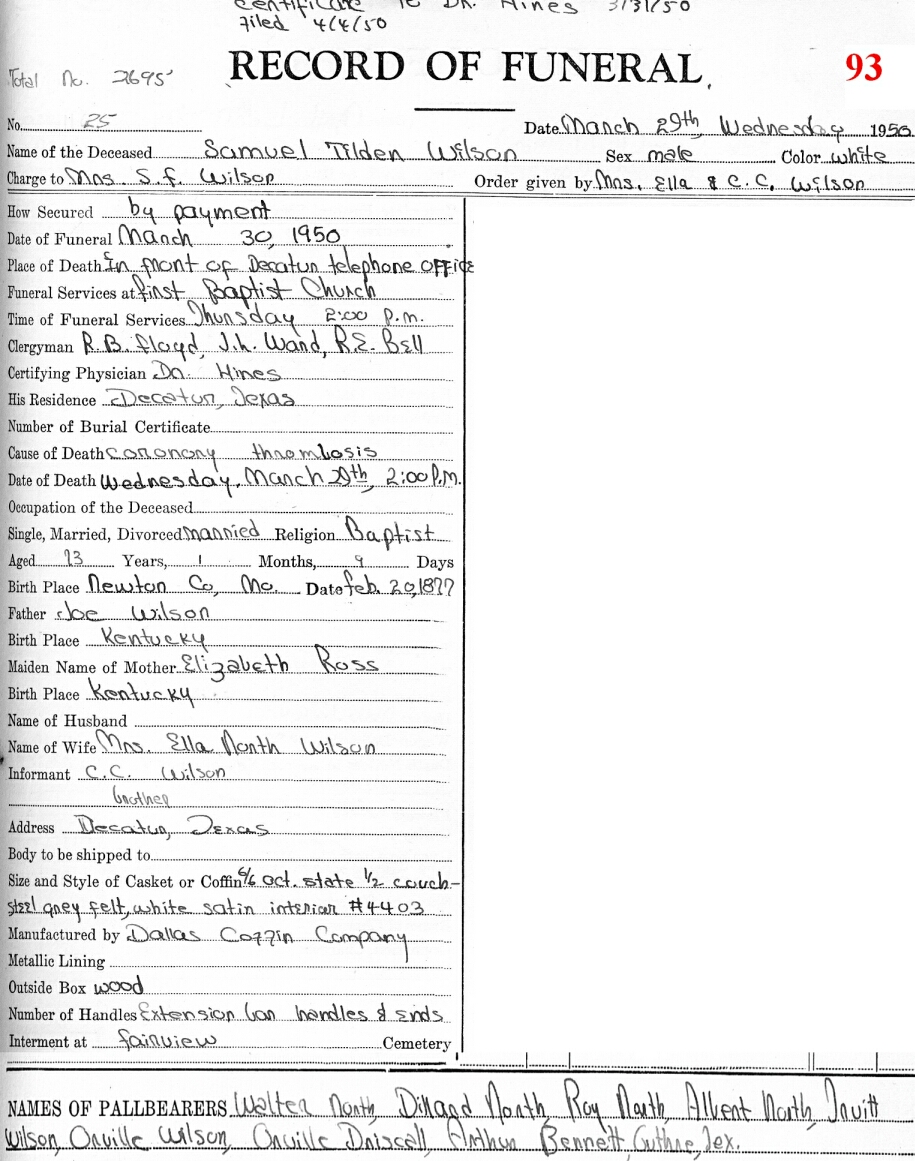 Certificate to Dr. Hines 3/31/50
Filed 4/4/50
Total No. 2695
RECORD OF FUNERAL
93
No. 25 Date March 29th, Wednesday 1950
Name of the Deceased Samuel Tilden Wilson Sex male Color white
Charge to Mrs. S.F. Wilson Order given by Mrs. Ella & C.C. Wilson
How Secured by payment
Date of Funeral March 30, 1950
Place of Death In front of Decatur telephone office
Funeral Services at First Baptist Church
Time of Funeral Services Thursday 2:00 P.m.
Clergyman R.B. Floyd, J.h. Ward, R.E. Bell
Certifying Physician Dr. Hines
His Residence Decatur, Texas
Number of Burial Certificate
Cause of Death coronory thrombosis
Date of Death Wednesday, March 29th, 2:00 P.M.
Occupation of the Deceased
Single, Married, Divorced married Religion Baptist
Aged 73 Years, 1 Months, 9 Days
Birth Place Newton Co, Mo. Date Feb. 20, 1877
Father Joe Wilson
Birth Place Kentucky
Maiden Name of Mother Elizabeth Ross
Birth Place Kentucky
Name of Husband
Name of Wife Mrs. Ella North Wilson
Informant C.C. Wilson
brother
Address Decatur, Texas
Body to be shipped to
Size and Style of Casket or Coffin 6/6 Oct. state 1/2 couch-
steel grey felt, white satin interior #4403
Manufactured by Dallas Coffin Company
Metallic Lining
Outside Box wood
Number of Handles Extension bar handles & ends
Interment at Fairview Cemetery
NAMES OF PALLBEARERS Walter North, Dillard North, Roy North, Albert North,
Wilson, Orville Wilson, Orville Driscell, Arthur Bennett, Guthrie, Tex.